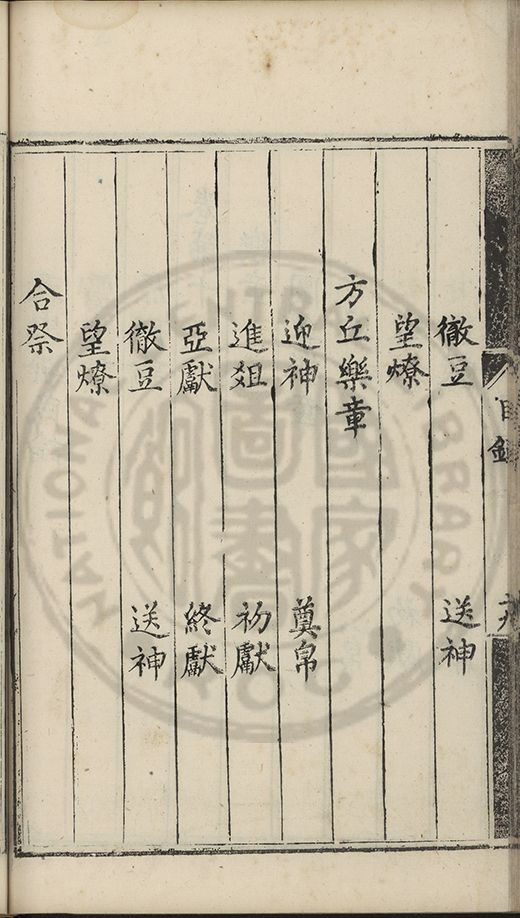 徹豆　送神
望燎
方丘樂章
迎神　奠帛
進俎　初獻
亞獻　終獻
徹豆　送神
望燎
合祭
目錄
國家圖書館